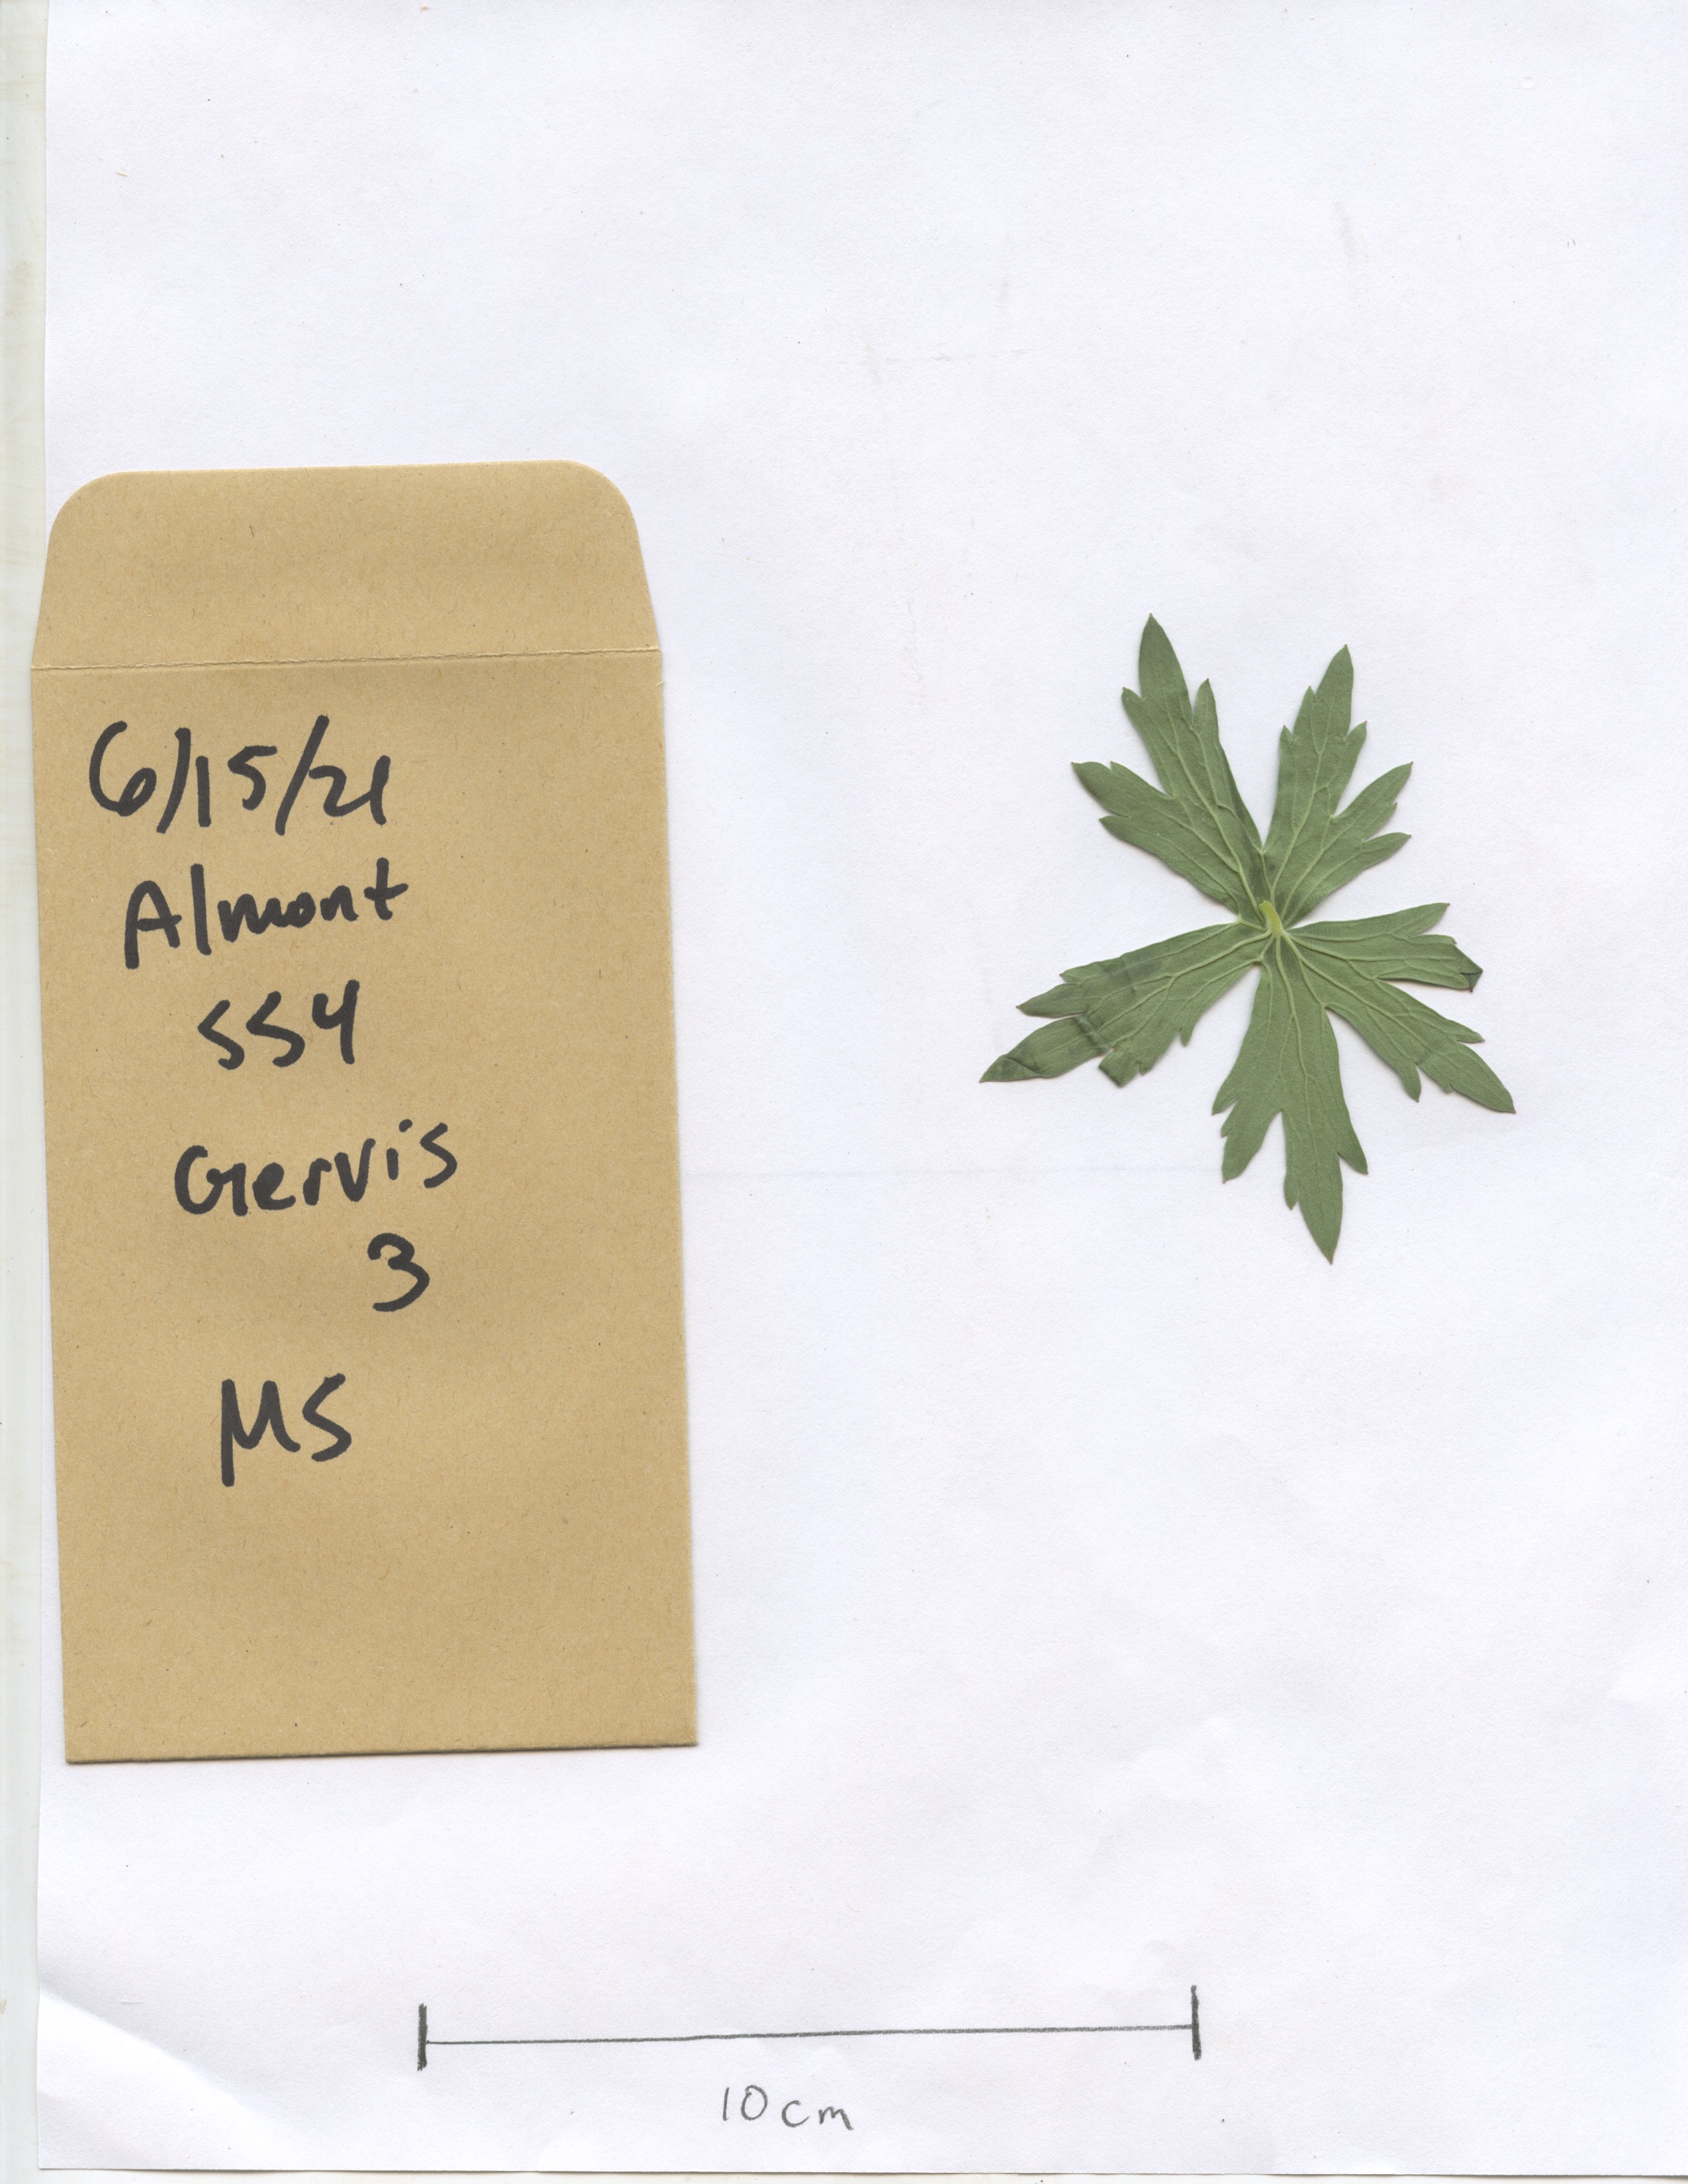 6/15/21
Almont
SS4
Gervis
3
MS
10cm